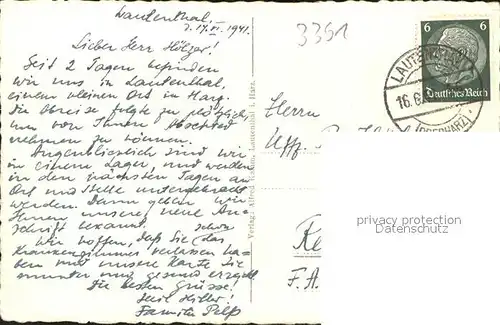 Lautenthal,
d. 17.VI. 1941.
Lieber Herr Hölzer!
Seit 2 Tagen befinden
wir uns in Lautenthal,
einem kleinen Ort im Harz.
Die Abreise folgte so plötzlich,
um von Ihnen Abschied
nehmen zu können.
Augenblicklich sind wir
in einem Lager, und werden
in den nächsten Tagen an
Ort und Stelle untergebracht
werden. Dann geben wir
Ihnen unsere neue An-
schrift bekannt.
Wir hoffen, daß Sie schon das
Krankenzimmer verlassen ha-
ben und unsere Karte Sie
munter und gesund
Die besten Grüsse!
Heil Hitler!
Familie
3391
Herrn
Uffz.
F.A.
6 6
Deutsches Reich
LAUTENTHAL
16.6.
(OBERHARZ)
privacy protection
Datenschutz
Verlag: Alfred
Lautenthal i. Harz.